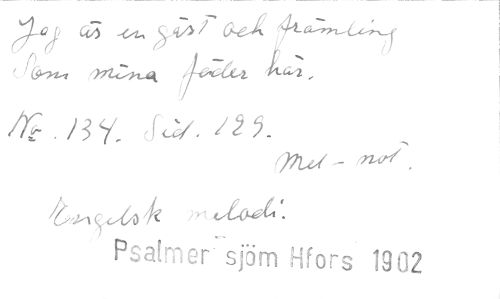 Jag är en gäst och främling
Som mina fäder här.
No. 134. Sid. 129.
Mel-not.
Engelsk melodi.
Psalmer sjöm Hfors 1902